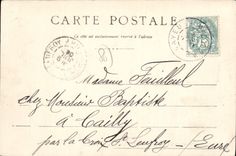 CARTE POSTALE
Ce côté est exclusivement réservé à l'adresse
Madame Tailleul
chez Monsieur Baptiste
à Cailly
par la Croix St Leufroy - Eure